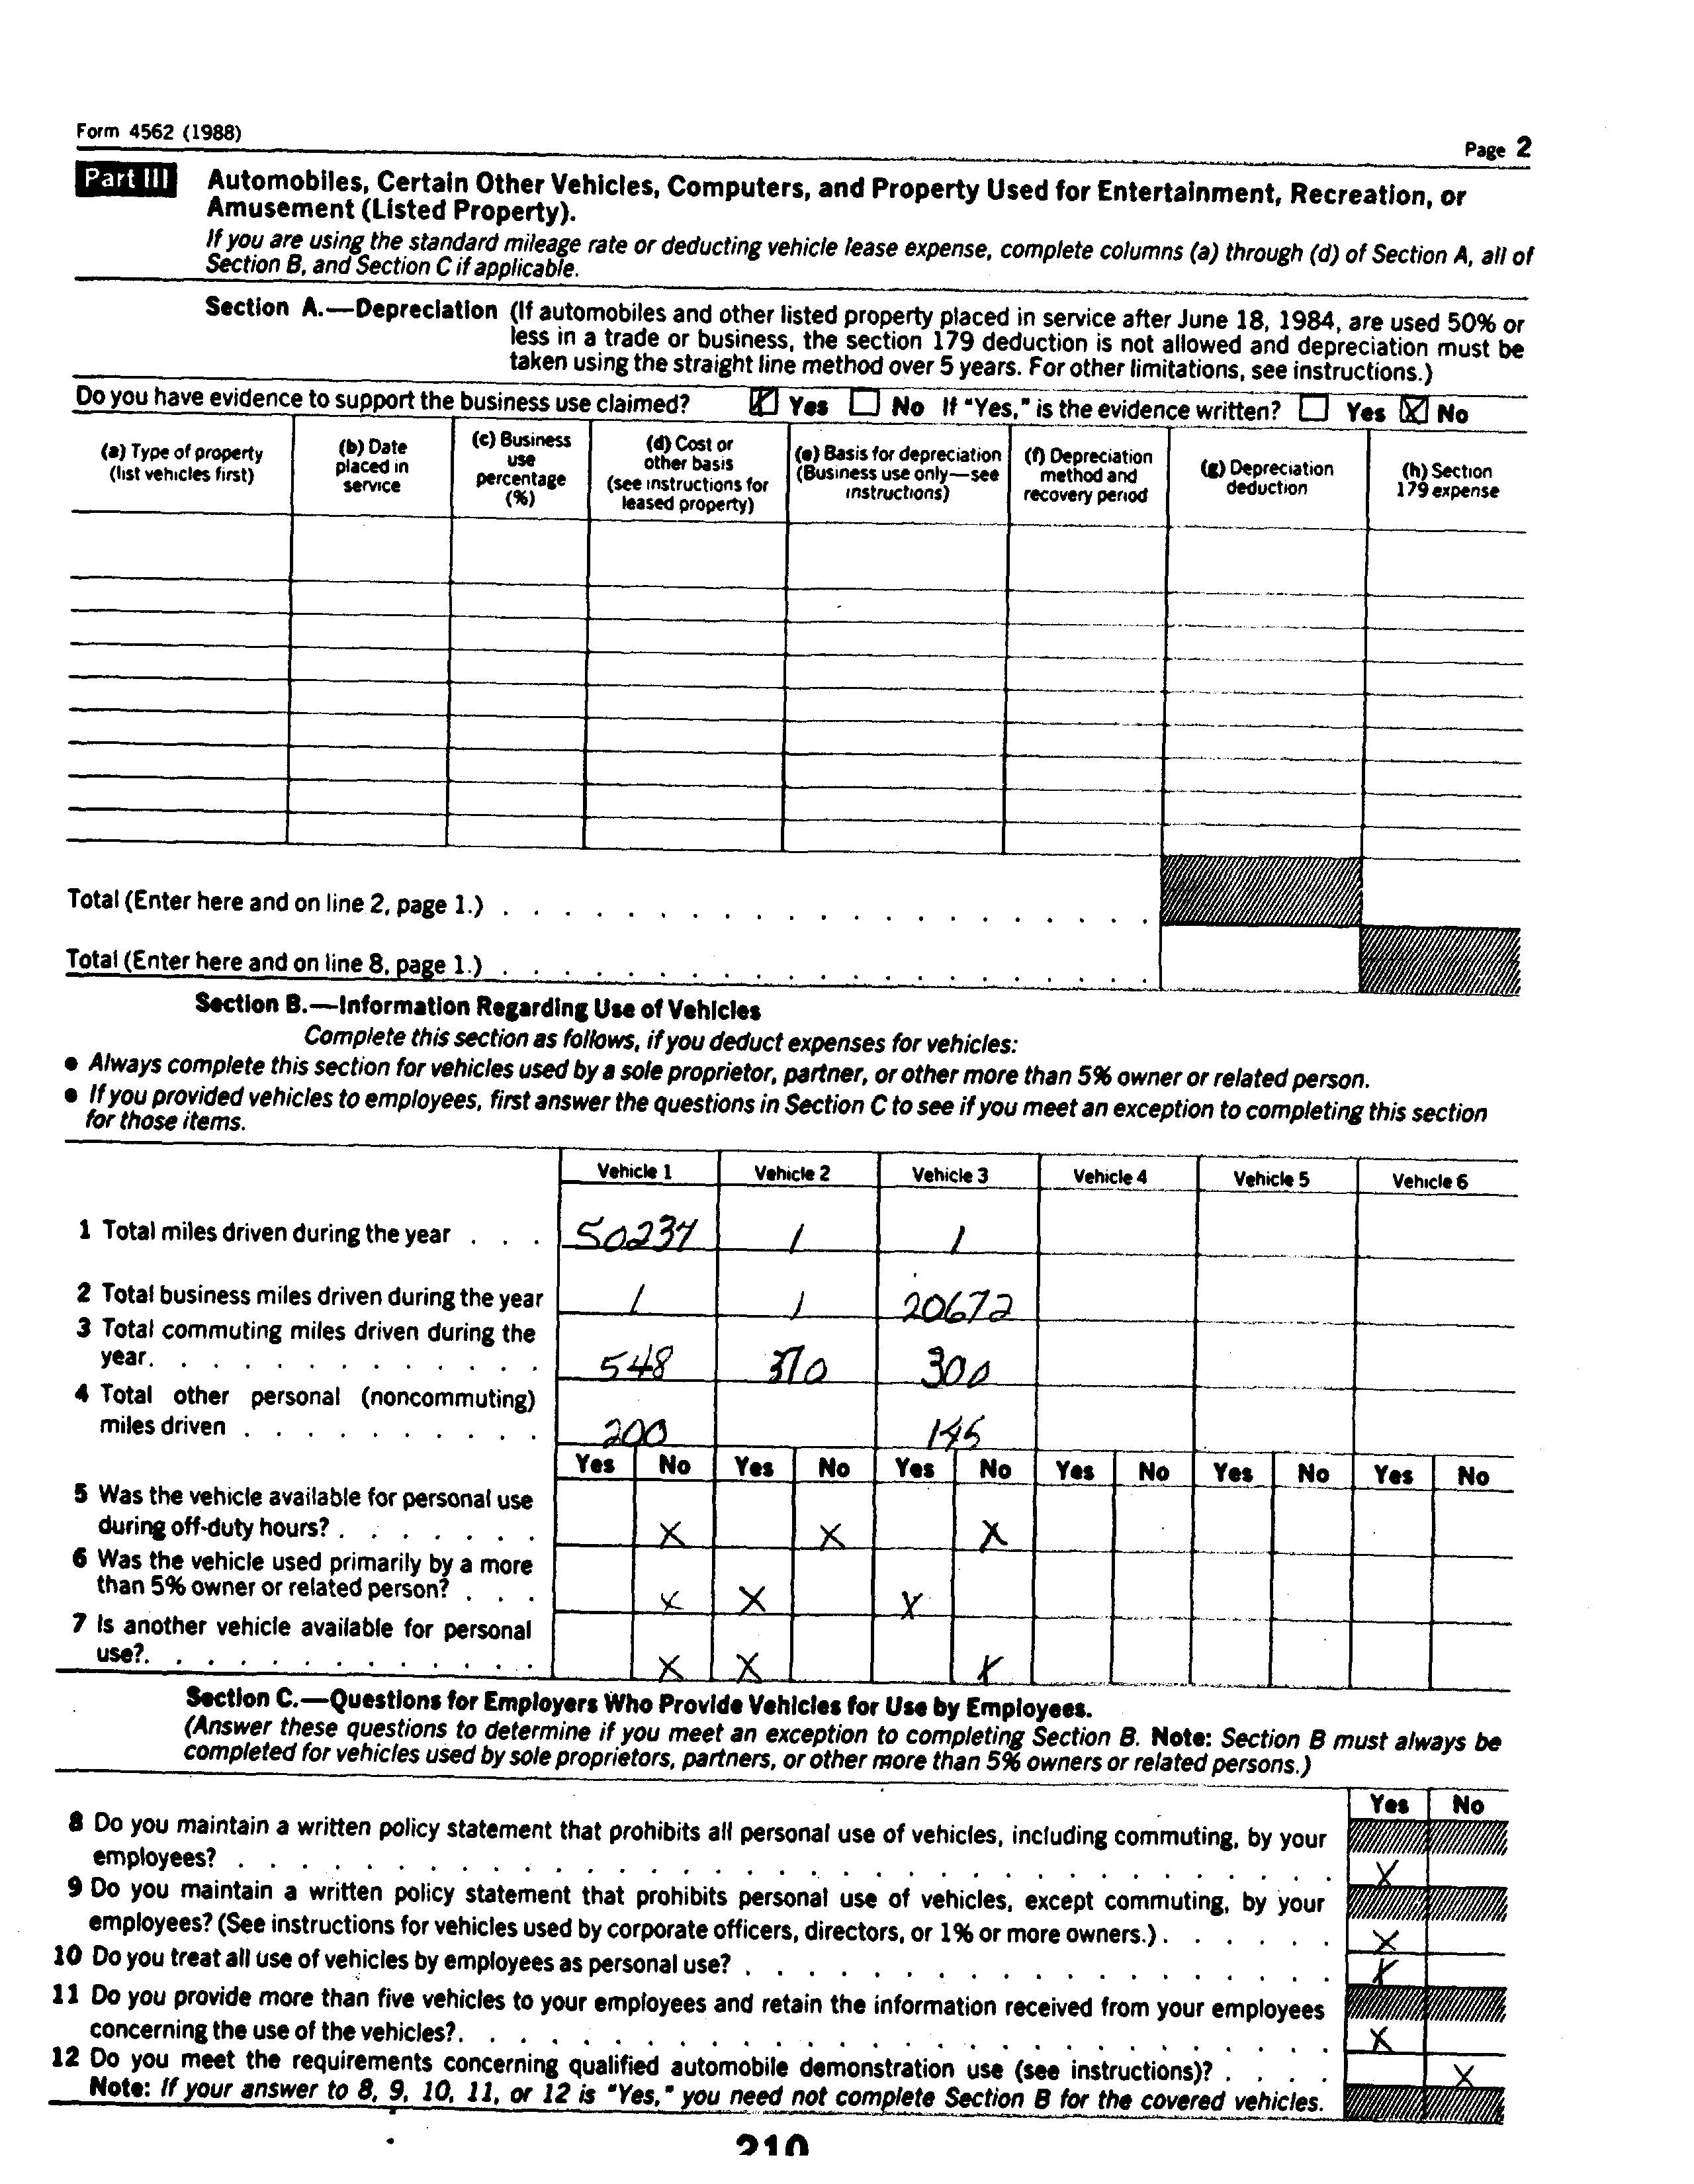 Form 4562 (1988)
Page 2
Part III Automobiles, Certain Other Vehicles, Computers, and Property Used for Entertainment, Recreation, or
Amusement (Listed Property).
If you are using the standard mileage rate or deducting vehicle lease expense, complete columns (a) through (d) of Section A, all of
Section B, and Section C if applicable.
Section A.—Depreciation (If automobiles and other listed property placed in service after June 18, 1984, are used 50% or
less in a trade or business, the section 179 deduction is not allowed and depreciation must be
taken using the straight line method over 5 years. For other limitations, see instructions.)
Do you have evidence to support the business use claimed? X Yes No If "Yes," is the evidence written? Yes X No
(a) Type of property
(list vehicles first)
(b) Date
placed in
service
(c) Business
use
percentage
(%)
(d) Cost or
other basis
(see instructions for
leased property)
(e) Basis for depreciation
(Business use only—see
instructions)
(f) Depreciation
method and
recovery period
(g) Depreciation
deduction
(h) Section
179 expense
Total (Enter here and on line 2, page 1.)
Total (Enter here and on line 8, page 1.)
Section B.—Information Regarding Use of Vehicles
Complete this section as follows, if you deduct expenses for vehicles:
● Always complete this section for vehicles used by a sole proprietor, partner, or other more than 5% owner or related person.
● If you provided vehicles to employees, first answer the questions in Section C to see if you meet an exception to completing this section
for those items.
Vehicle 1 Vehicle 2 Vehicle 3 Vehicle 4 Vehicle 5 Vehicle 6
1 Total miles driven during the year . . . 50237 1 1
2 Total business miles driven during the year 1 1 20672
3 Total commuting miles driven during the
year. 548 370 300
4 Total other personal (noncommuting)
miles driven 200 145
Yes No Yes No Yes No Yes No Yes No Yes No
5 Was the vehicle available for personal use
during off-duty hours? X X X
6 Was the vehicle used primarily by a more
than 5% owner or related person? X X X
7 Is another vehicle available for personal
use?. X X X
Section C.—Questions for Employers Who Provide Vehicles for Use by Employees.
(Answer these questions to determine if you meet an exception to completing Section B. Note: Section B must always be
completed for vehicles used by sole proprietors, partners, or other more than 5% owners or related persons.)
Yes No
8 Do you maintain a written policy statement that prohibits all personal use of vehicles, including commuting, by your
employees? X
9 Do you maintain a written policy statement that prohibits personal use of vehicles, except commuting, by your
employees? (See instructions for vehicles used by corporate officers, directors, or 1% or more owners.) X
10 Do you treat all use of vehicles by employees as personal use? X
11 Do you provide more than five vehicles to your employees and retain the information received from your employees
concerning the use of the vehicles?. X
12 Do you meet the requirements concerning qualified automobile demonstration use (see instructions)? X
Note: If your answer to 8, 9, 10, 11, or 12 is "Yes," you need not complete Section B for the covered vehicles.
210